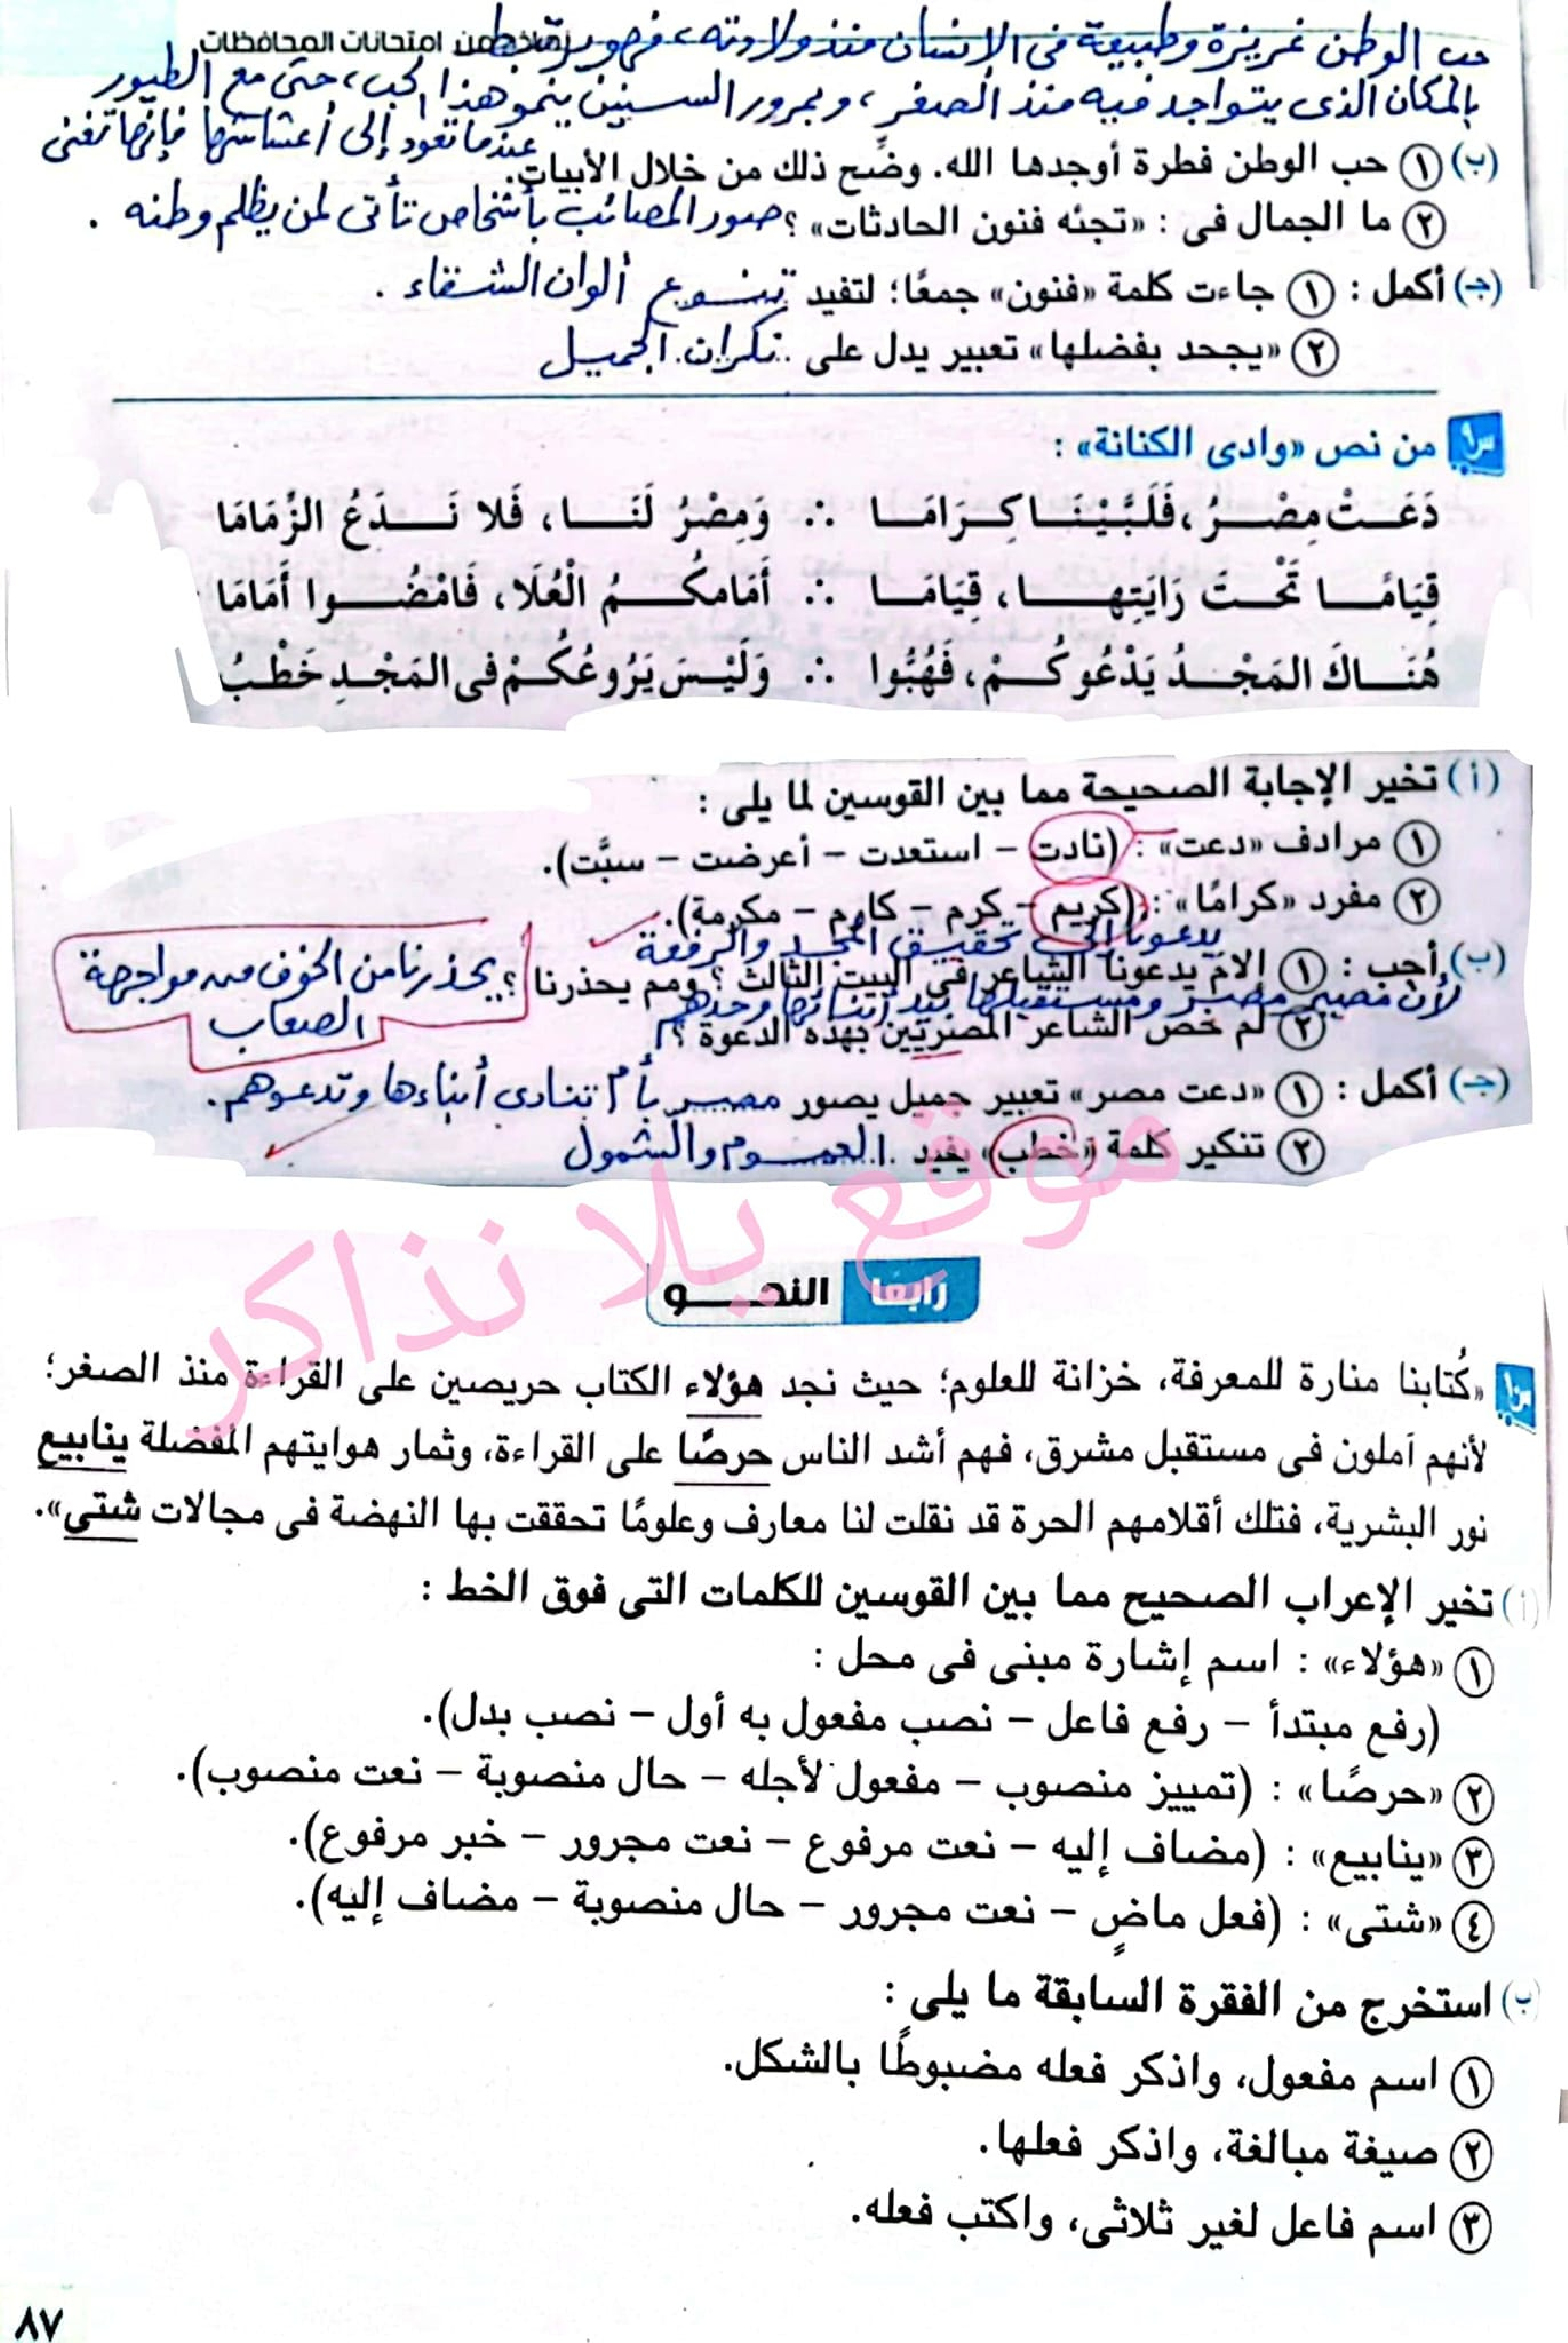 نماذج من امتحانات المحافظات
حب الوطن غريزة وطبيعة فى الإنسان منذ ولادته، فهو يرتبط
بالمكان الذى يتواجد فيه منذ الصغر، وبمرور السنين ينمو هذا الحب، حتى مع الطيور
عندما تعود إلى أعشاشها فإنها تغنى
(ب) ١ حب الوطن فطرة أوجدها الله. وضِّح ذلك من خلال الأبيات.
٢ ما الجمال فى : «تجئه فنون الحادثات» ؟ صور المصائب بأشخاص تأتى لمن يظلم وطنه .
(جـ) أكمل : ١ جاءت كلمة «فنون» جمعًا؛ لتفيد تنوع ألوان الشقاء .
٢ «يجحد بفضلها» تعبير يدل على نكران الجميل
س٩ من نص «وادى الكنانة» :
دَعَتْ مِصْرُ، فَلَبَّيْنَا كِرَامَا ∴ وَمِصْرُ لَنَا، فَلا نَدَعُ الزِّمَامَا
قِيَامًا تَحْتَ رَايَتِها، قِيَامَا ∴ أَمَامَكُمُ الْعُلَا، فَامْضُوا أَمَامَا
هُنَاكَ المَجْدُ يَدْعُوكُمْ، فَهُبُّوا ∴ وَلَيْسَ يَرُوعُكُمْ فى المَجْدِ خَطْبُ
(أ) تخير الإجابة الصحيحة مما بين القوسين لما يلى :
١ مرادف «دعت» : (نادت – استعدت – أعرضت – سبَّت).
٢ مفرد «كرامًا» : (كريم – كرم – كارم – مكرمة).
يدعونا إلى تحقيق المجد والرفعة
(ب) أجب : ١ إلامَ يدعونا الشاعر فى البيت الثالث ؟ ومم يحذرنا ؟ يحذرنا من الخوف من مواجهة
الصعاب
لأن مصير مصر ومستقبلها بيد أبنائها وحدهم
٢ لم خص الشاعر المصريين بهذه الدعوة ؟
(جـ) أكمل : ١ «دعت مصر» تعبير جميل يصور مصر بأم تنادى أبناءها وتدعوهم.
٢ تنكير كلمة «خطب» يفيد العموم والشمول
موقع يلا نذاكر
رابعًا النحو
س١٠ «كُتابنا منارة للمعرفة، خزانة للعلوم؛ حيث نجد هؤلاء الكتاب حريصين على القراءة منذ الصغر؛
لأنهم آملون فى مستقبل مشرق، فهم أشد الناس حرصًا على القراءة، وثمار هوايتهم المفضلة ينابيع
نور البشرية، فتلك أقلامهم الحرة قد نقلت لنا معارف وعلومًا تحققت بها النهضة فى مجالات شتى».
(أ) تخير الإعراب الصحيح مما بين القوسين للكلمات التى فوق الخط :
١ «هؤلاء» : اسم إشارة مبنى فى محل :
(رفع مبتدأ – رفع فاعل – نصب مفعول به أول – نصب بدل).
٢ «حرصًا» : (تمييز منصوب – مفعول لأجله – حال منصوبة – نعت منصوب).
٣ «ينابيع» : (مضاف إليه – نعت مرفوع – نعت مجرور – خبر مرفوع).
٤ «شتى» : (فعل ماضٍ – نعت مجرور – حال منصوبة – مضاف إليه).
(ب) استخرج من الفقرة السابقة ما يلى :
١ اسم مفعول، واذكر فعله مضبوطًا بالشكل.
٢ صيغة مبالغة، واذكر فعلها.
٣ اسم فاعل لغير ثلاثى، واكتب فعله.
٨٧